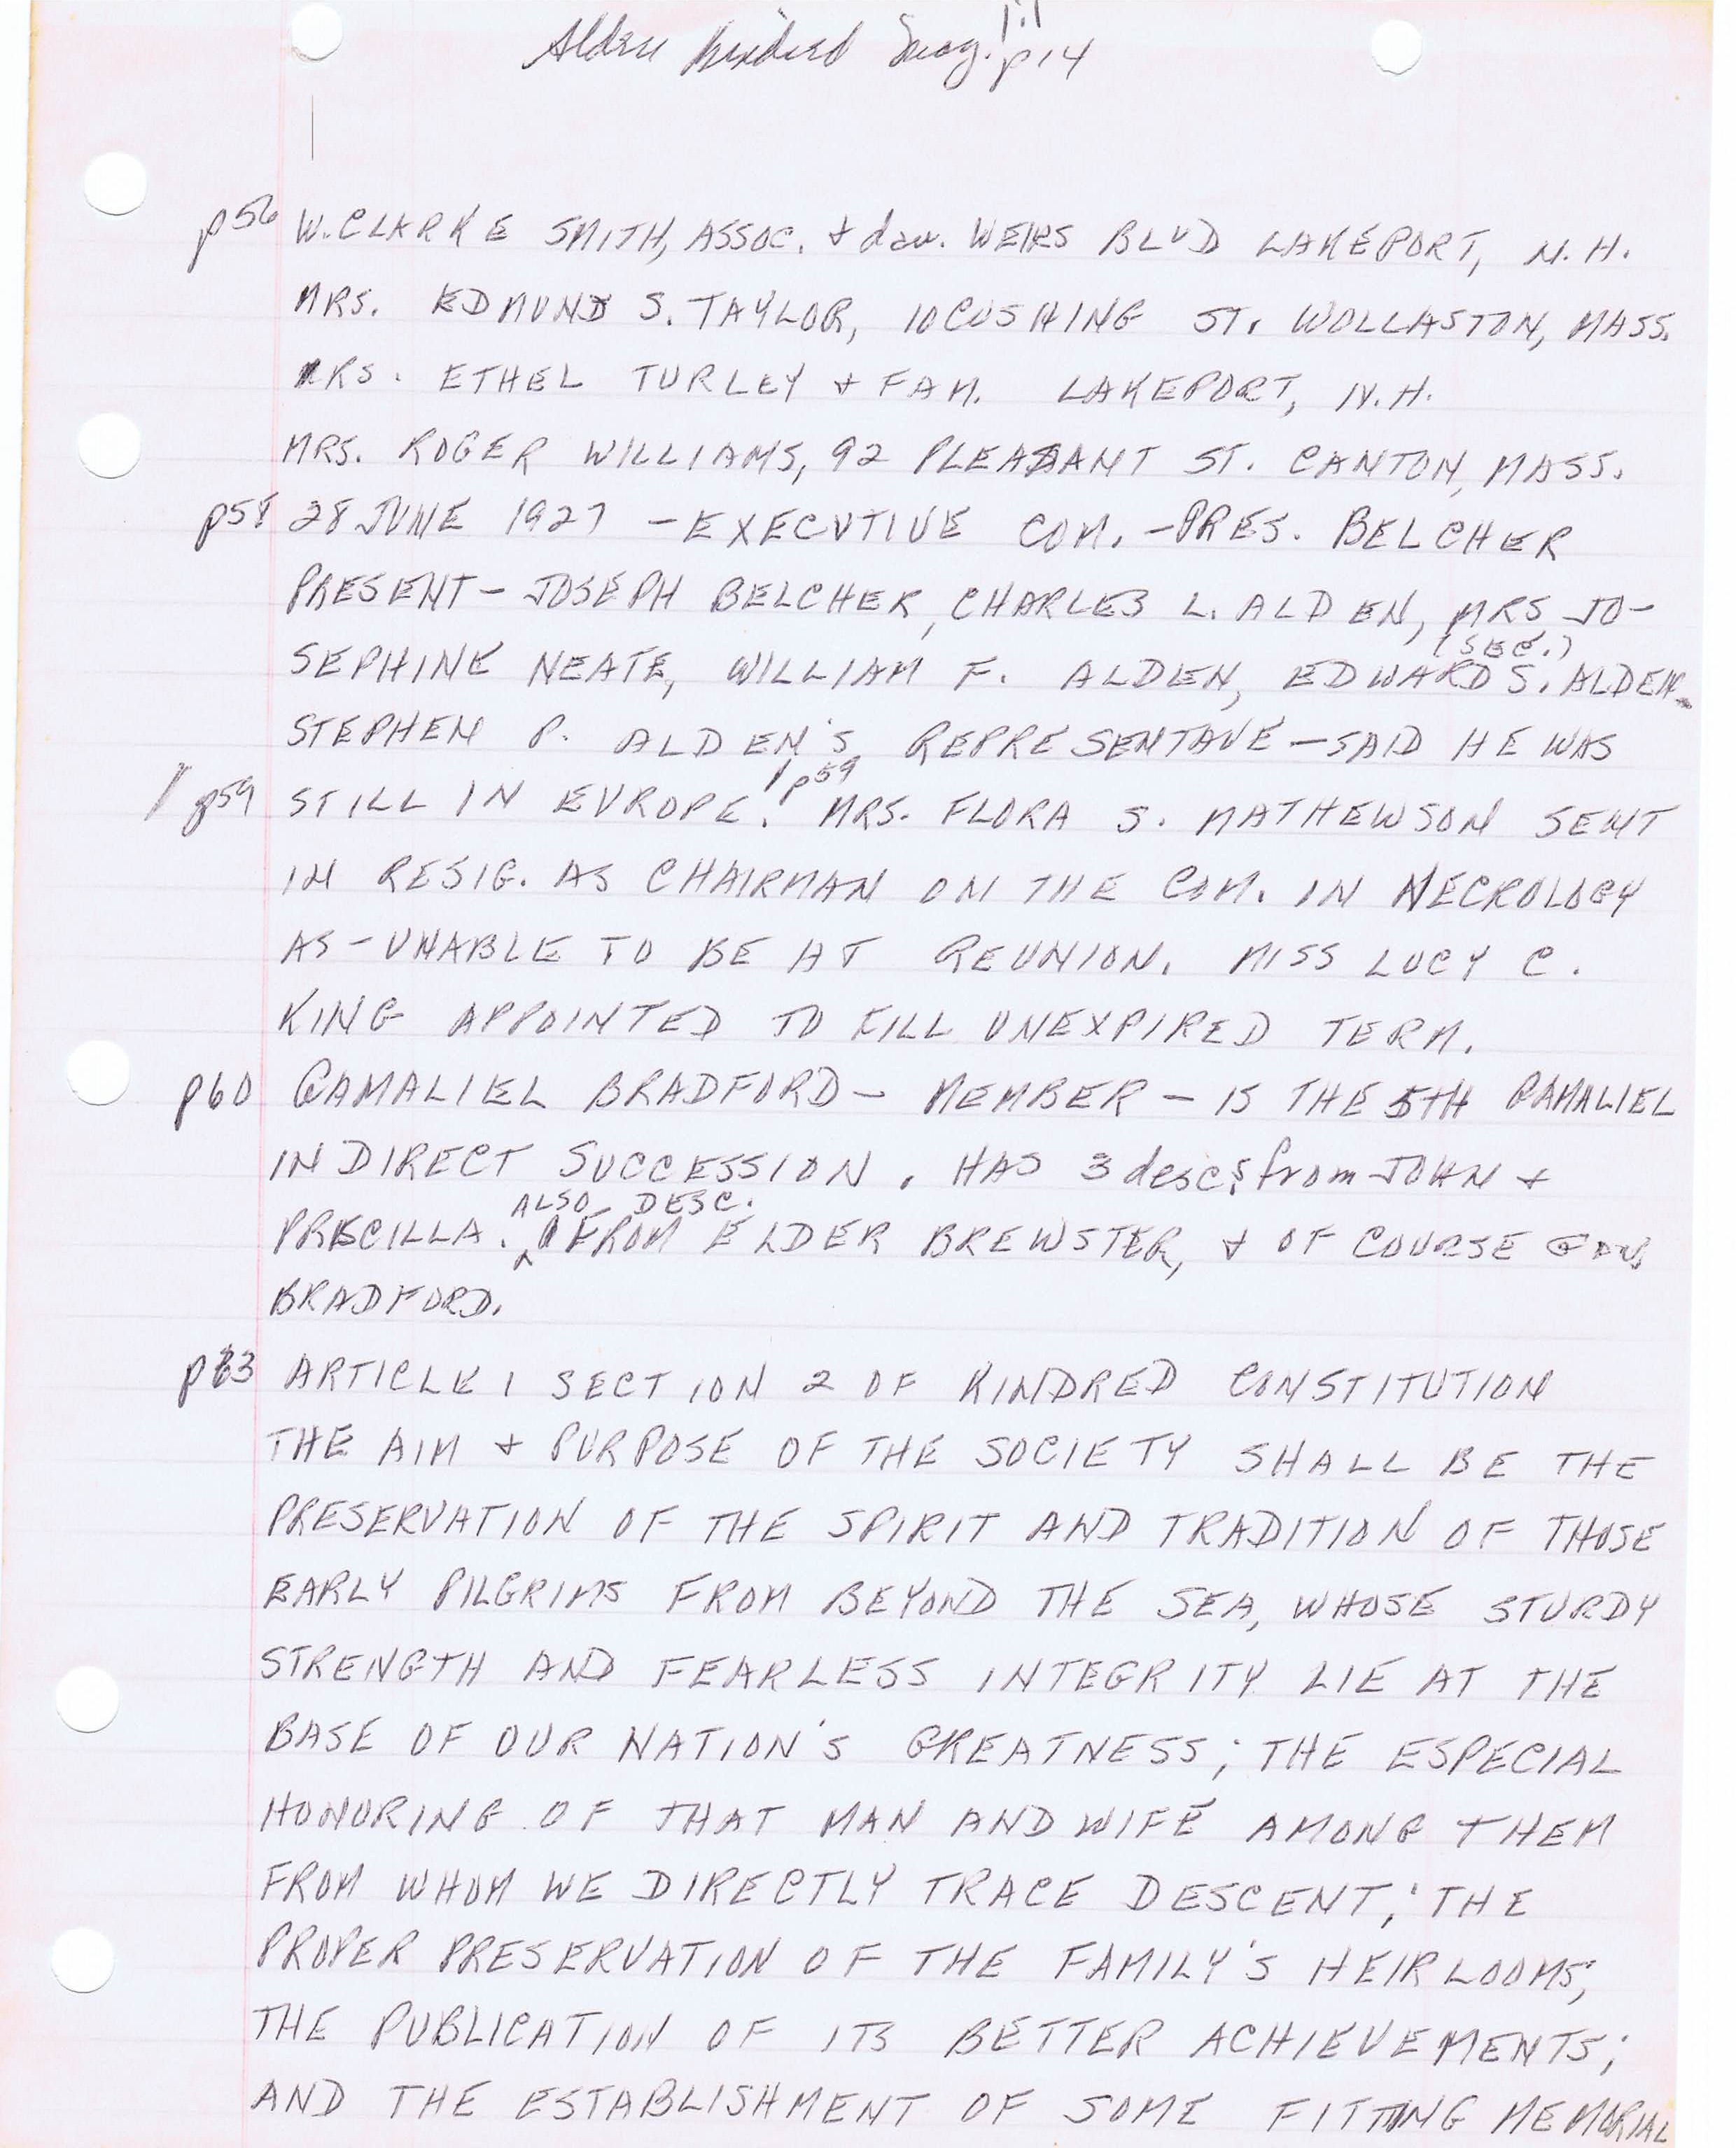 Alden Kindred Mag. 1:1 p14
p56 W. CLARKE SMITH, ASSOC. + dau. WEIRS BLVD LAKEPORT, N.H.
MRS. EDMUND S. TAYLOR, 10 CUSHING ST. WOLLASTON, MASS.
MRS. ETHEL TURLEY + FAM. LAKEPORT, N.H.
MRS. ROGER WILLIAMS, 92 PLEASANT ST. CANTON, MASS.
p58 28 JUNE 1927 - EXECUTIVE COM. - PRES. BELCHER
PRESENT - JOSEPH BELCHER, CHARLES L. ALDEN, MRS JO-
(SEC.)
SEPHINE NEATE, WILLIAM F. ALDEN, EDWARD S. ALDEN.
STEPHEN P. ALDEN'S REPRESENTAVE - SAID HE WAS
/ p59 STILL IN EUROPE. / p59 MRS. FLORA S. MATHEWSON SENT
IN RESIG. AS CHAIRMAN ON THE COM. IN NECROLOGY
AS - UNABLE TO BE AT REUNION. MISS LUCY C.
KING APPOINTED TO FILL UNEXPIRED TERM.
p60 GAMALIEL BRADFORD - MEMBER - IS THE 5TH GAMALIEL
IN DIRECT SUCCESSION. HAS 3 descs from JOHN +
ALSO DESC.
PRISCILLA. FROM ELDER BREWSTER, + OF COURSE GOV.
BRADFORD.
p63 ARTICLE 1 SECTION 2 OF KINDRED CONSTITUTION
THE AIM + PURPOSE OF THE SOCIETY SHALL BE THE
PRESERVATION OF THE SPIRIT AND TRADITION OF THOSE
EARLY PILGRIMS FROM BEYOND THE SEA, WHOSE STURDY
STRENGTH AND FEARLESS INTEGRITY LIE AT THE
BASE OF OUR NATION'S GREATNESS; THE ESPECIAL
HONORING OF THAT MAN AND WIFE AMONG THEM
FROM WHOM WE DIRECTLY TRACE DESCENT; THE
PROPER PRESERVATION OF THE FAMILY'S HEIRLOOMS;
THE PUBLICATION OF ITS BETTER ACHIEVEMENTS;
AND THE ESTABLISHMENT OF SOME FITTING MEMORIAL